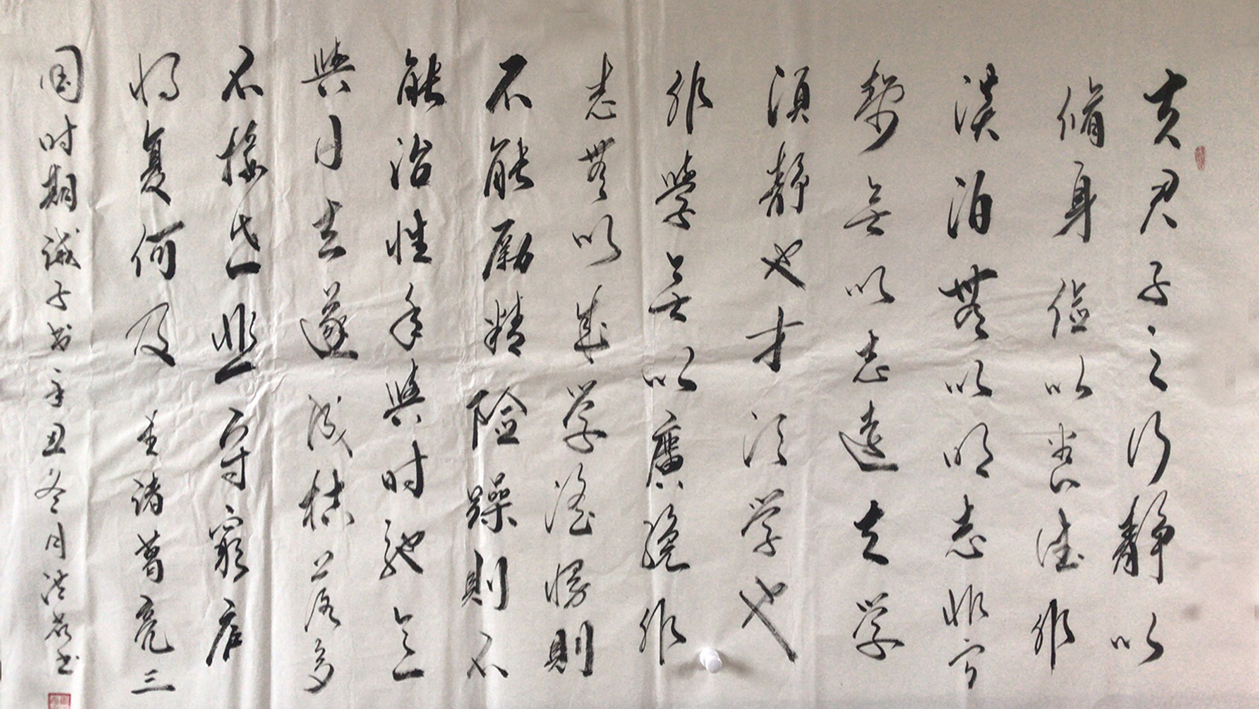 夫君子之行静以
脩身俭以养德非
淡泊無以明志非宁
静无以志遠夫学
須静也才须学也
非學无以廣纔非
志無以成学淫慢則
不能励精险躁則不
能治性年與时驰意
與日去遂成枯落多
不接世悲守穷庐
将复何及 录诸葛亮三
国时期诫子书辛丑冬月洪书